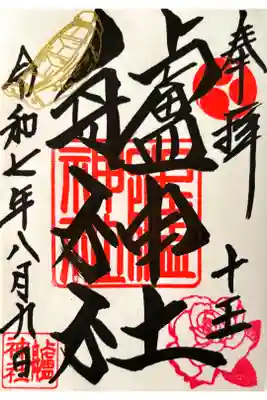 奉拝
十五
艫神社
艫神社
令和七年八月九日
艫神社